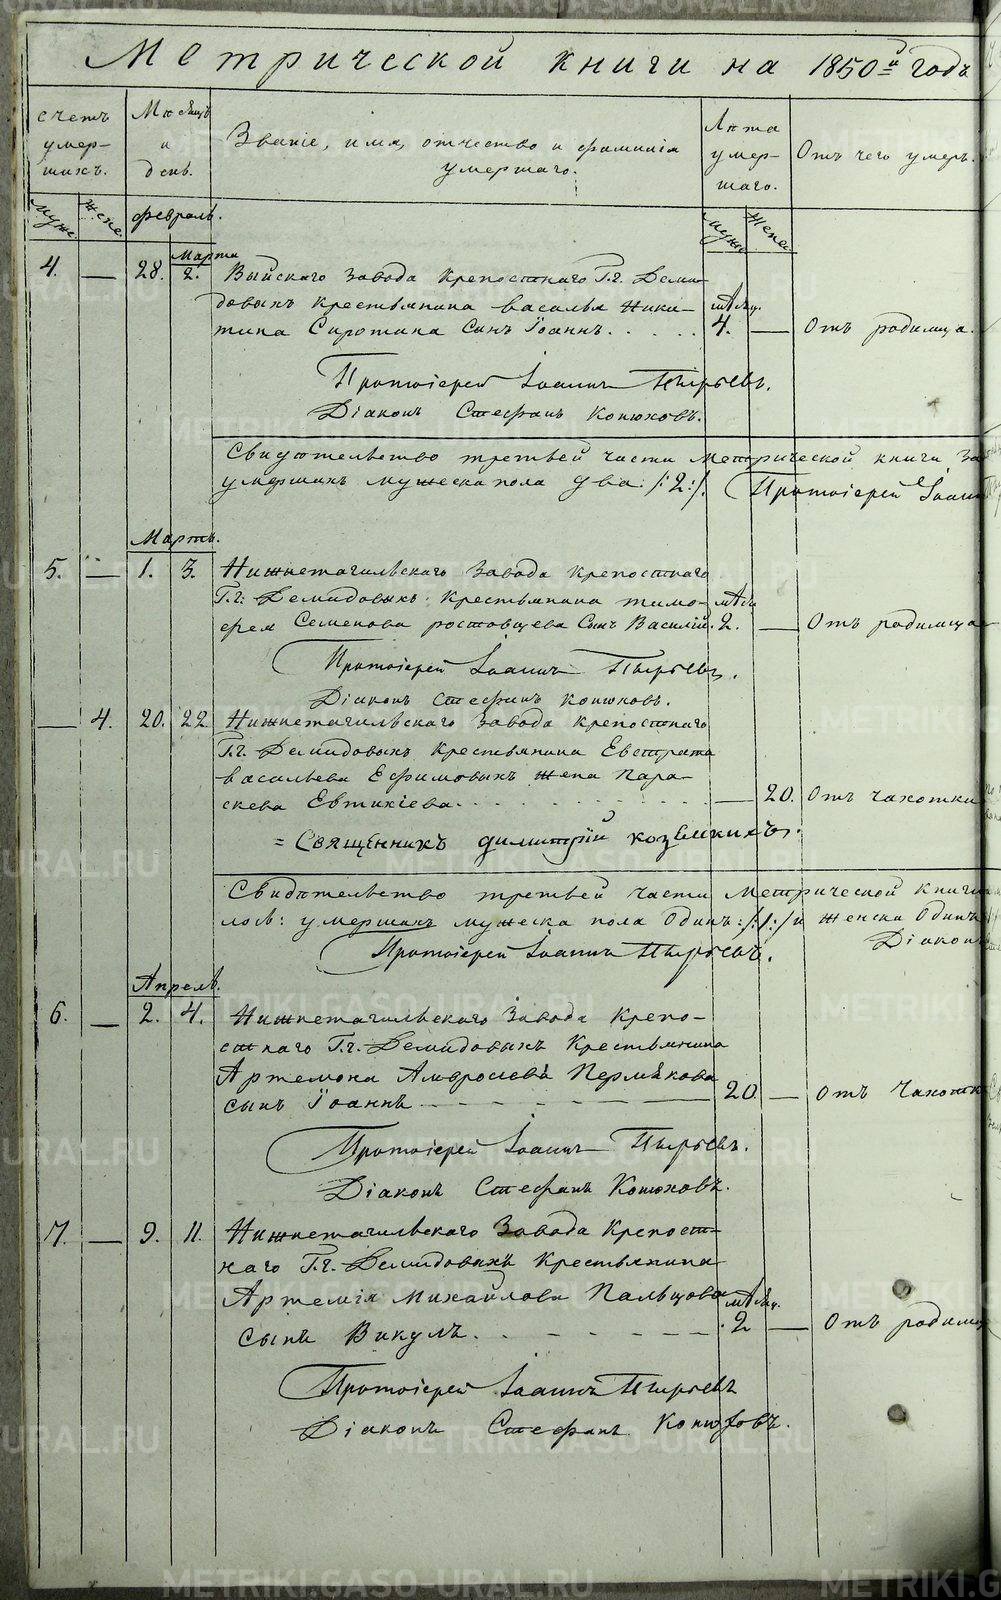 Метрической книги на 1850й годъ
счетъ умер-шихъ.
Мѣсяцъ и день.
Званіе, имя, отчество и фамилія умершаго.
Лѣта умер-шаго.
Отъ чего умеръ.
муже. жене. февраль. муже женс.
Марта
4. — 28. 2. Выйскаго завода крепостнаго Г.г. Деми-
довыхъ крестьянина василья Ники- мѣсяц.
тина Сиротина Сынъ Іоаннъ. . . . . 4. — Отъ родимца.
Протоіерей Іоаннъ Пырьевъ.
Діаконъ Стефанъ Конюховъ.
Свидѣтельство третьей части метрической книги за
умершихъ мужеска пола два /:2:/. Протоіерей Іоан
Мартъ.
5. — 1. 3. Нижнетагильскаго завода крепостнаго
Г.г. Демидовыхъ крестьянина тимо- мѣся
фея Семенова ростовщева Сынъ Василій. 2. — Отъ родимца
Протоіерей Іоаннъ Пырьевъ.
Діаконъ Стефанъ Конюховъ.
— 4. 20. 22 Нижнетагильскаго завода крепостнаго
Г.г. Демидовыхъ крестьянина Евстрата
васильева Ефимовыхъ жена Пара-
скева Евтихіева. . . . . . . . . — 20. Отъ чахотки
= Священникъ димитрій козьминыхъ.
Свидѣтельство третьей части Метрической книги
лов: умершихъ мужеска пола Одинъ:/:1:/ и женска Одинъ
Діаконъ
Протоіерей Іоаннъ Пырьевъ.
Апрель.
6. — 2. 4. Нижнетагильскаго завода крепо-
стнаго Г.г. Демидовыхъ Крестьянина
Артемона Амвросіева Пермякова
сынъ Іоаннъ — — — 20. — Отъ чахотк
Протоіерей Іоаннъ Пырьевъ.
Діаконъ Стефанъ Конюховъ.
7. — 9. 11. Нижнетагильскаго Завода Крепост-
наго Г.г. Демидовыхъ Крестьянина
Артемія Михайлова Пальцова мѣсяц.
сынъ Викулъ. — — — . 2 — Отъ родимц
Протоіерей Іоаннъ Пырьевъ
Діаконъ Стефанъ Конюховъ.
METRIKI.GASO-URAL.RU